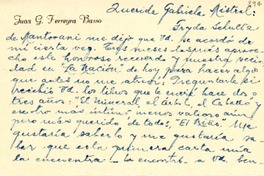 192
Juan G. Ferreyra Basso
Querida Gabriela Mistral:
Fryda Schultz
de Mantovani me dijo que Vd. se acordó de
mí cierta vez. Tres meses después aprove-
cho este honroso recuerdo y nuestra vecin-
dad en "La Nación" de hoy para hacer algo
que antes nunca me animé: Preguntarle si
recibió Vd. los libros que le mandé hace dos o
tres años: "El Mineral, el Árbol, el Caballo" y
otro más íntimo, menos valioso aún
pero más querido de todos, "El Me
gustaría saberlo y me gustaría sa-
ber que es esta primera carta mía
la encontró a Vd. bien